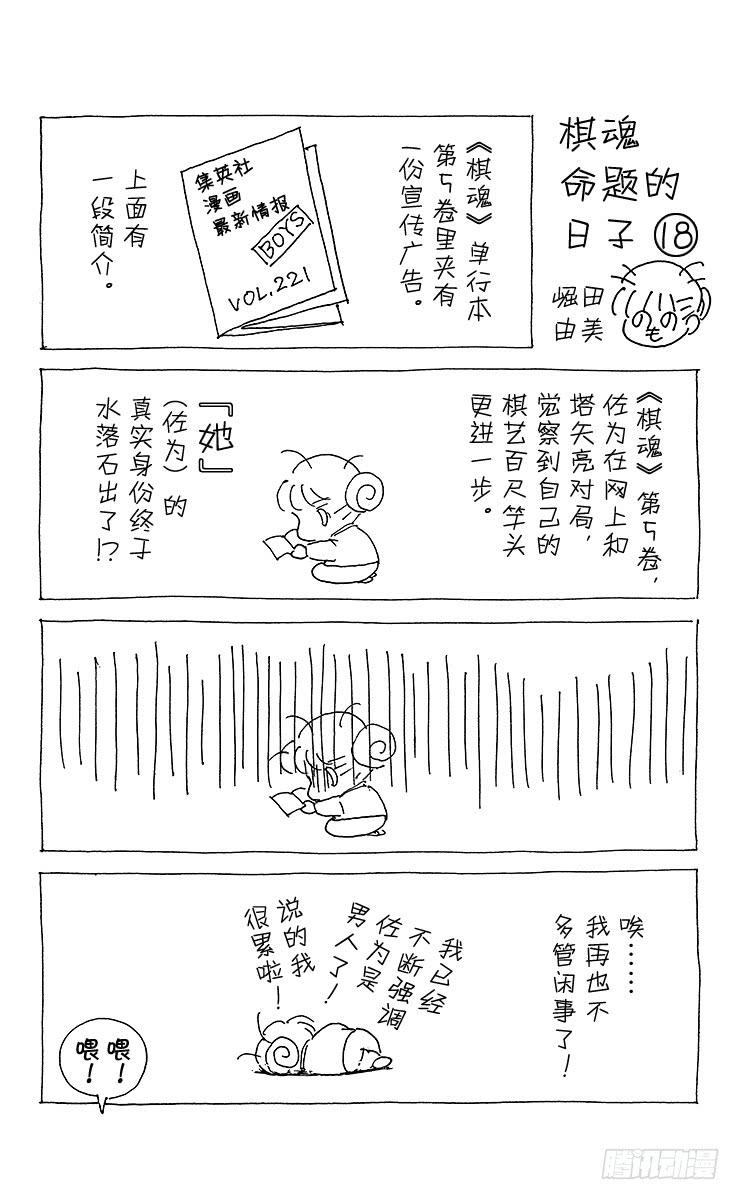 棋魂
命题的
日子⑱
崛田
由美
《棋魂》单行本
第5卷里夹有
一份宣传广告。
集英社
漫画
最新情报
BOYS
VOL.221
上面有
一段简介。
《棋魂》第5卷，
佐为在网上和
塔矢亮对局，
觉察到自己的
棋艺百尺竿头
更进一步。
『她』
（佐为）的
真实身份终于
水落石出了！？
唉……
我再也不
多管闲事了！
我已经
不断强调
佐为是
男人了！
说的我
很累啦！
喂！
喂！
腾讯动漫